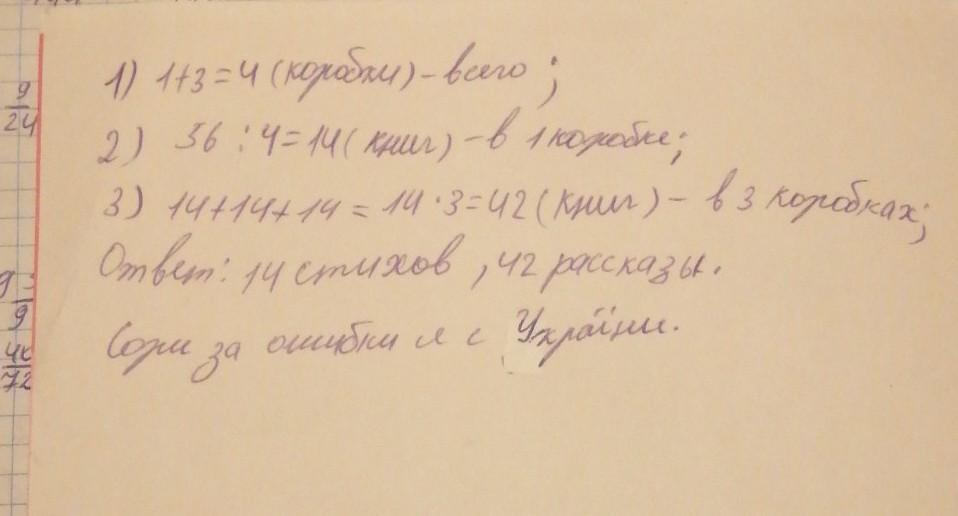 1) 1+3=4 (коробки) - всего;
2) 56 : 4=14 ( книг) - в 1 коробке;
3) 14+14+14 = 14 · 3=42 ( книг) - в 3 коробках;
Ответ: 14 стихов , 42 рассказы.
Сори за ошибки я с України.
9
24
9
72